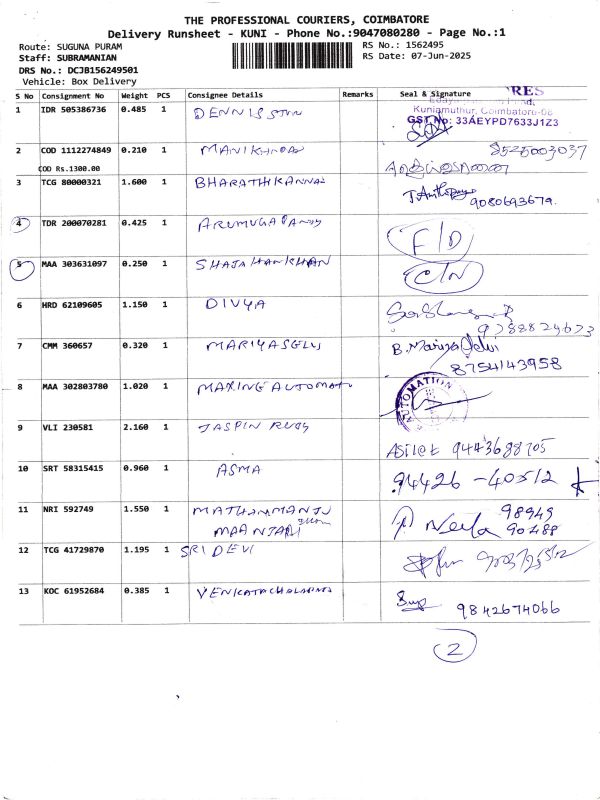 THE PROFESSIONAL COURIERS, COIMBATORE
Delivery Runsheet - KUNI - Phone No.:9047080280 - Page No.:1
Route: SUGUNA PURAM
RS No.: 1562495
Staff: SUBRAMANIAN
RS Date: 07-Jun-2025
DRS No.: DCJB156249501
Vehicle: Box Delivery
S No Consignment No Weight PCS Consignee Details Remarks Seal & Signature
RES
Kuniamuthur, Coimbatore-08
GST No: 33AEYPD7633J1Z3
1 IDR 505386736 0.485 1 DENNISSTON
2 COD 1112274849 0.210 1 8525003037
COD Rs.1300.00
3 TCG 80000321 1.600 1 BHARATHIKANNAN 9080693679.
4 TDR 200070281 0.425 1 ARUMUGAPANDY F/D
5 MAA 303631097 0.250 1 SHAJAHANKHAN C/N
6 HRD 62109605 1.150 1 DIVYA
7 CMM 360657 0.320 1 MARIYASELV B.
8754143958
8 MAA 302803780 1.020 1 MAXINE AUTOMAT AUTOMATION
9 VLI 230581 2.160 1 JASPIN RUBY
10 SRT 58315415 0.960 1 ASMA 94426-40512
11 NRI 592749 1.550 1 98949
90488
12 TCG 41729870 1.195 1 SRI DEVI
13 KOC 61952684 0.385 1 9842674066
2